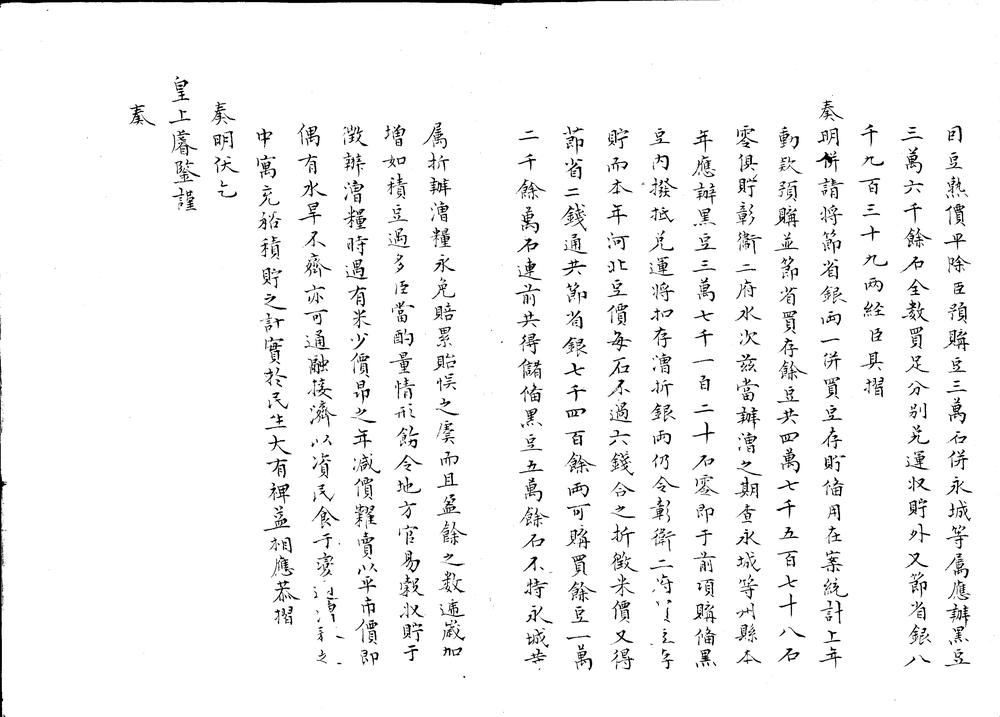 目豆熟價平除臣預購豆三萬石併永城等屬應辦黑豆
三萬六千餘石全数買足分别兑運收貯外又節省銀八
千九百三十九兩經臣具摺
奏明併請將節省銀兩一併買豆存貯俻用在案統計上年
動欵預購並節省買存餘豆共四萬七千五百七十八石
零俱貯彰衛二府水次兹當辦漕之期查永城等州縣本
年應辦黑豆三萬七千一百二十石零即于前項購俻黑
豆内撥抵兑運將扣存漕折銀兩仍令彰衛二府
貯而本年河北豆價每石不過六錢合之折徵米價又得
節省二錢通共節省銀七千四百餘兩可購買餘豆一萬
二千餘萬石連前共得儲俻黑豆五萬餘石不特永城等
屬折辦漕糧永免賠累貽悮之虞而且盈餘之数遞嵗加
增如積豆過多臣當酌量情形飭令地方官易穀收貯于
徵辦漕糧時遇有米少價昂之年減價糶賣以平市價即
偶有水旱不齊亦可通融接濟以資民食于變通漕之
中寓充裕積貯之計實於民生大有裨益相應恭摺
奏明伏乞
皇上睿鑒謹
奏